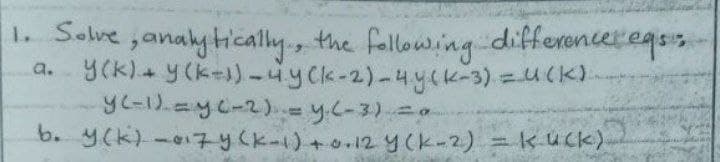 1. Solve, analytically, the following difference eqs:
a. y(k) + y(k-1) - 4y(k-2) - 4y(k-3) = u(k)
y(-1) = y(-2) = y(-3) = 0
b. y(k) - 0.7 y(k-1) + 0.12 y(k-2) = k u(k)